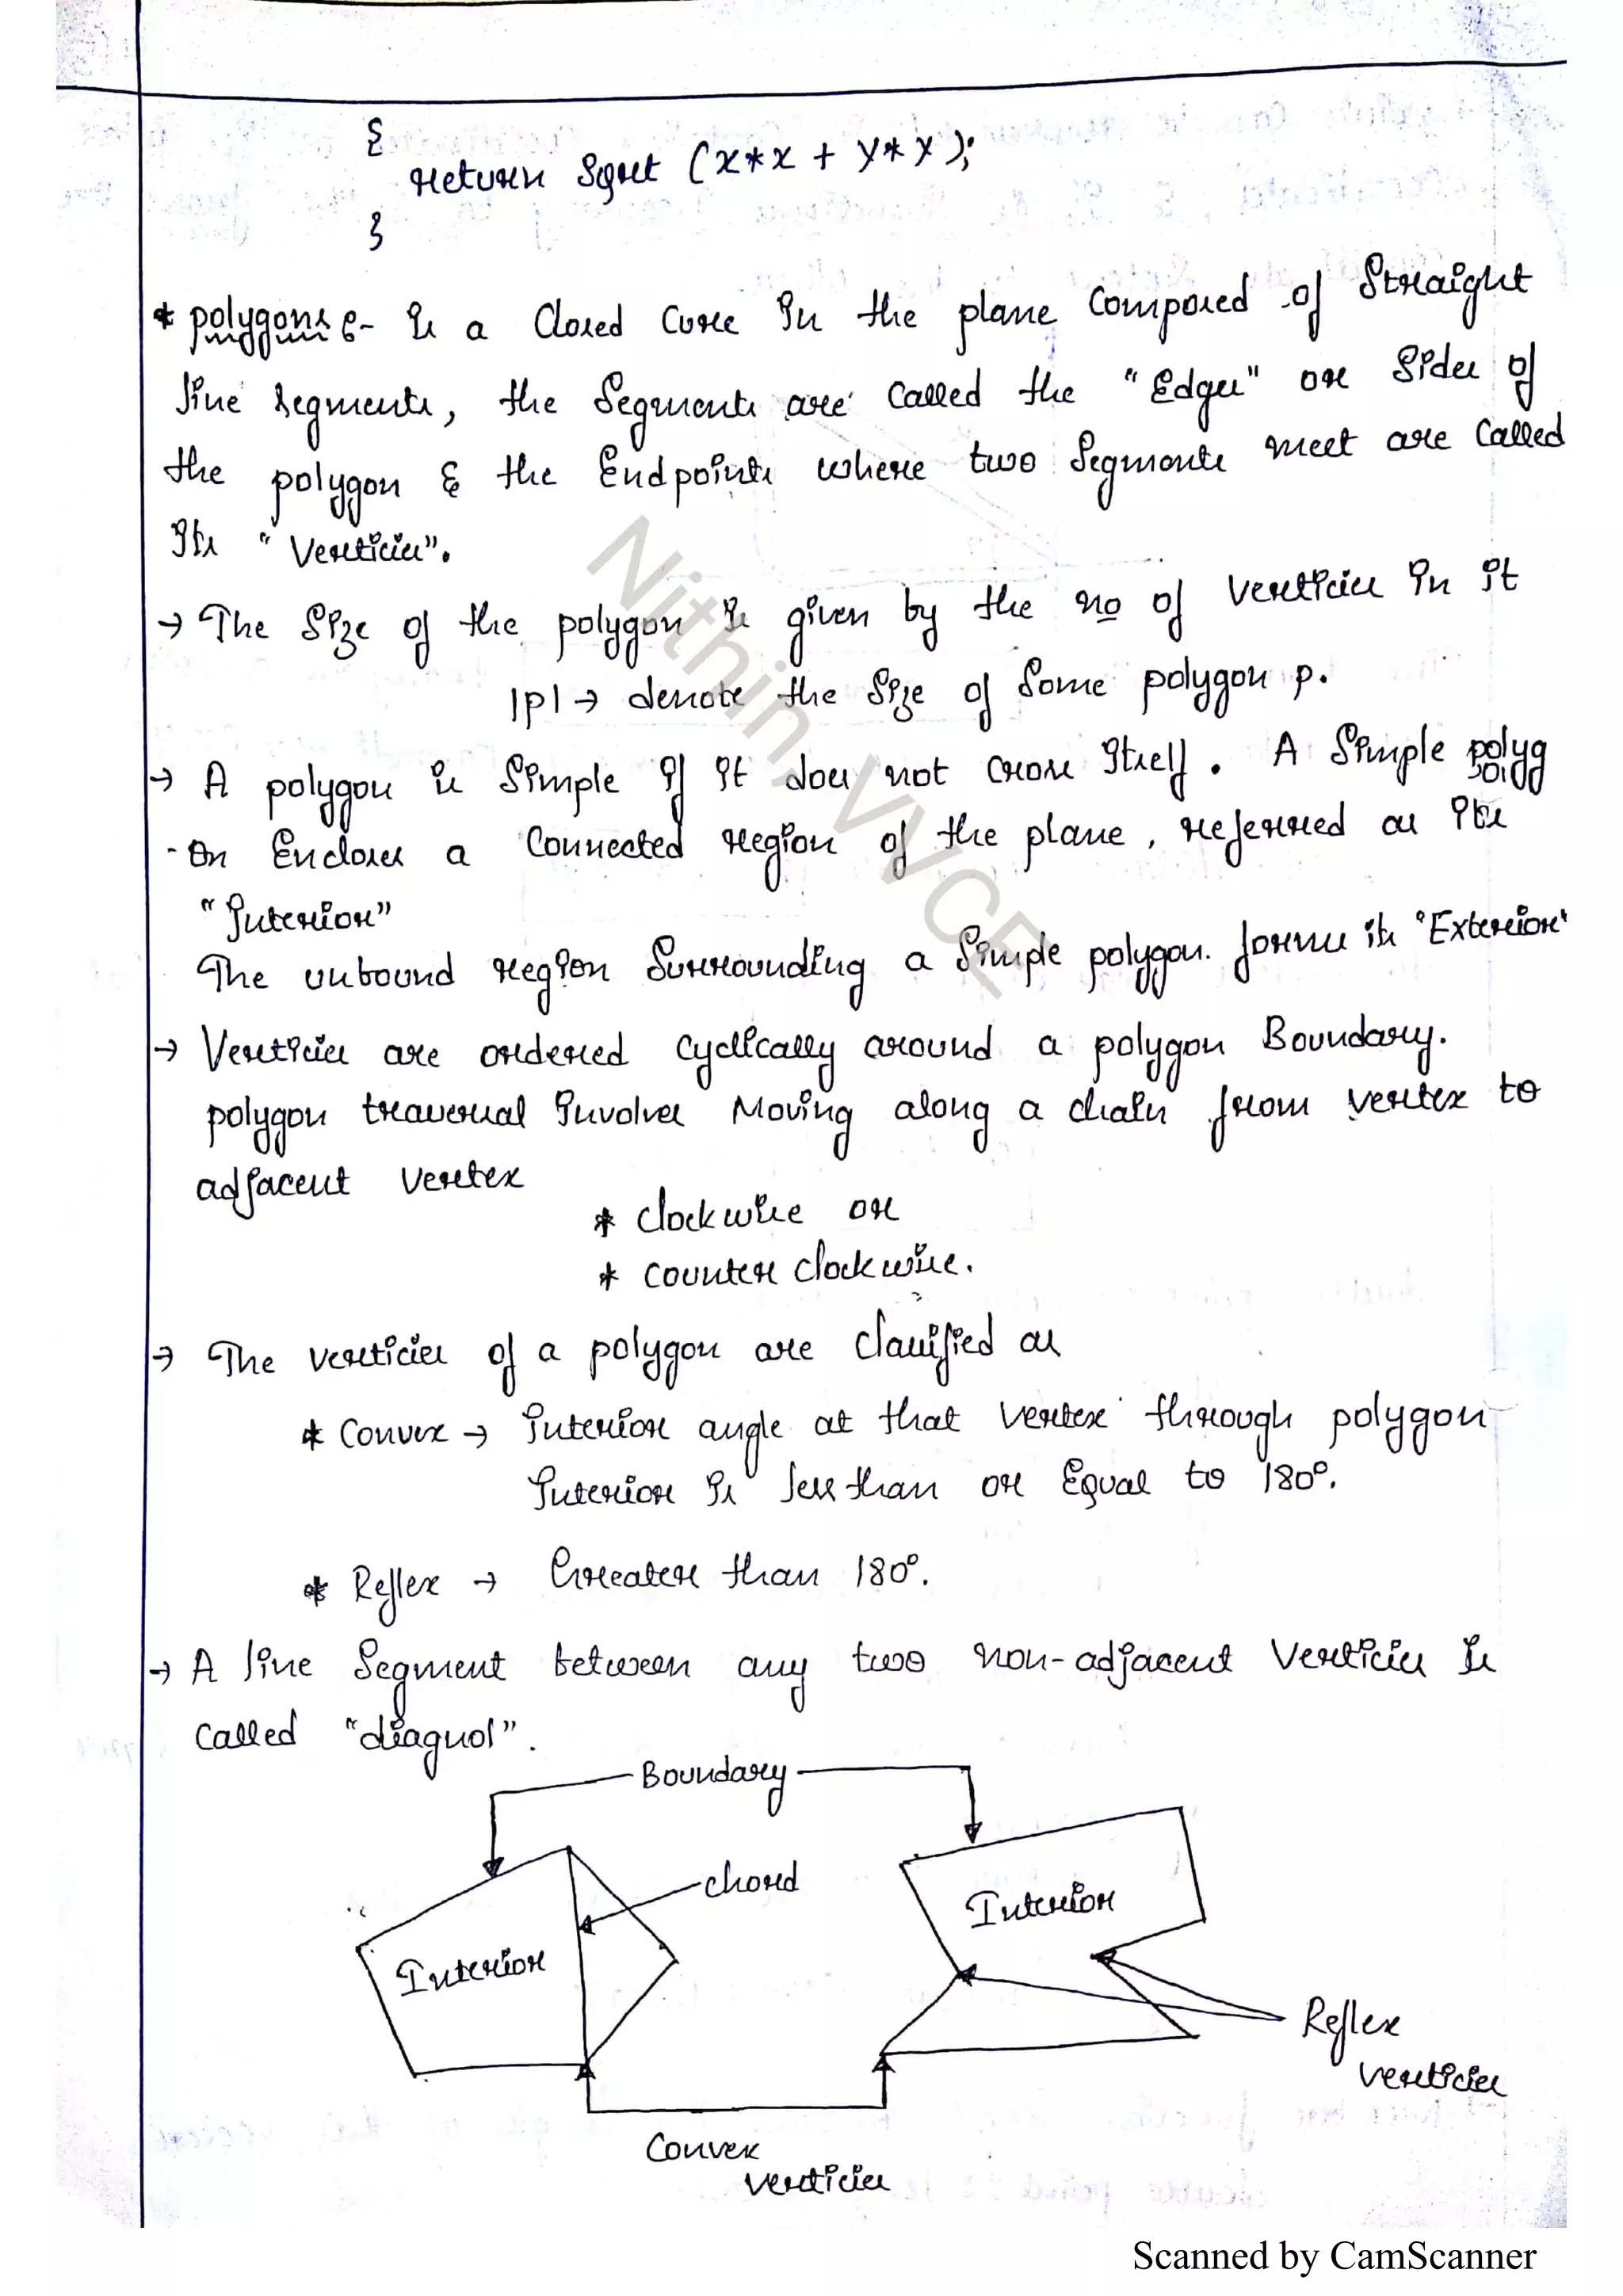 {
return sqrt (x*x + y*y);
}
* polygons :- Is a closed curve in the plane composed of straight
line segments, the segments are called the "Edges" or sides of
the polygon & the Endpoints where two segments meet are called
its "Vertices".
→ The size of the polygon is given by the no of vertices in it
|p| → denote the size of some polygon p.
→ A polygon is simple if it does not cross itself. A simple polyg
-on Encloses a connected region of the plane, referred as its
"Interior"
The unbound region surrounding a simple polygon. forms its "Exterior"
→ Vertices are ordered cyclically around a polygon Boundary.
polygon traversal involves Moving along a chain from vertex to
adjacent vertex
* clockwise or
* counter clockwise.
→ The vertices of a polygon are classified as
* Convex → interior angle at that vertex through polygon
Interior is less than or Equal to 180°.
* Reflex → Greater than 180°.
→ A line segment between any two non-adjacent vertices is
called "diagnol".
Boundary
chord
Interior
Interior
Reflex
vertices
Convex
vertices
Nithin, VVCE
Scanned by CamScanner